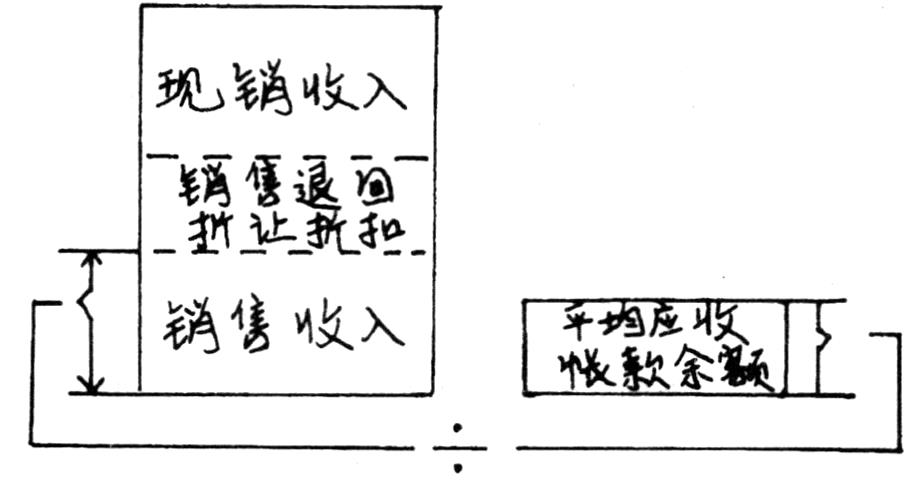 现销收入
销售退回
折让折扣
销售收入
平均应收
帐款余额
÷